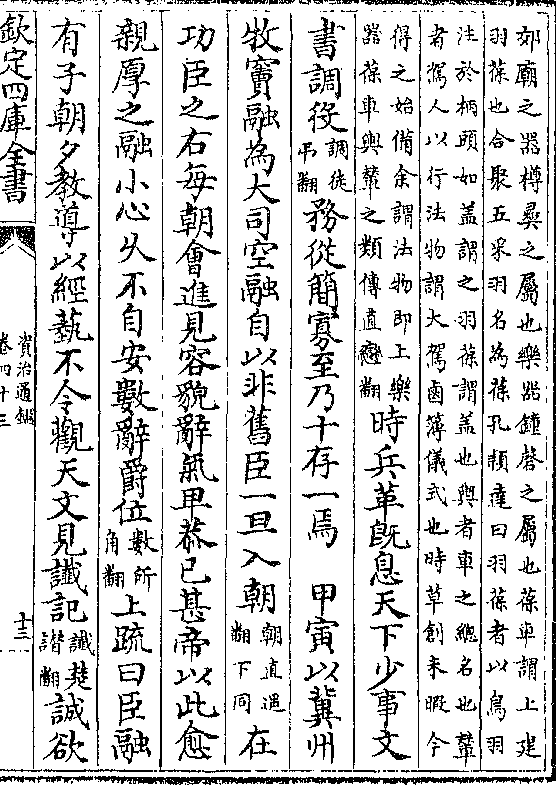 郊廟之器樽彞之屬也樂器鐘磬之屬也葆車謂上建
羽葆也合聚五采羽名為葆孔穎達曰羽葆者以鳥羽
注於柄頭如蓋謂之羽葆謂蓋也輿者車之總名也輦
者駕人以行法物謂大駕鹵簿儀式也時草創未暇今
得之始備余謂法物即上樂
器葆車輿輦之類傳直戀翻時兵革旣息天下少事文
書調役調徒弔翻務從簡寡至乃十存一焉　甲寅以冀州
牧竇融為大司空融自以非舊臣一旦入朝朝直遥翻下同在
功臣之右每朝會進見容貌辭氣卑恭已甚帝以此愈
親厚之融小心久不自安數辭爵位數所角翻上疏曰臣融
有子朝夕教導以經藝不令觀天文見讖記讖楚譖翻誠欲
欽定四庫全書
資治通鑑
卷四十三
十三